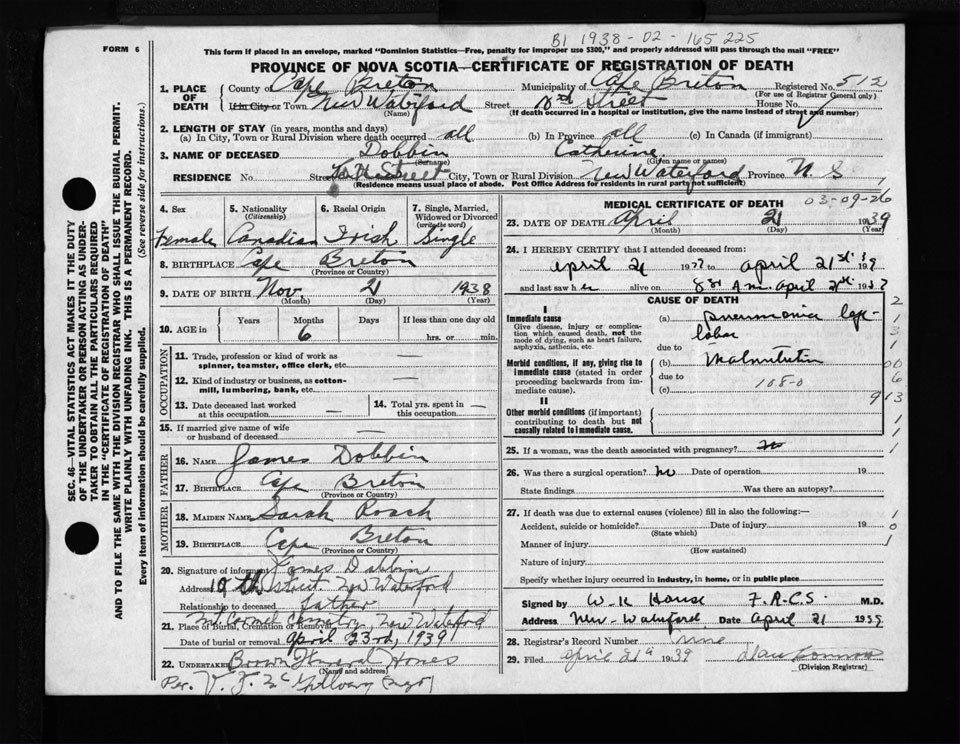 B1 1938-02-165225
FORM 6
This form if placed in an envelope, marked "Dominion Statistics—Free, penalty for improper use $300," and properly addressed will pass through the mail "FREE"
PROVINCE OF NOVA SCOTIA—CERTIFICATE OF REGISTRATION OF DEATH
SEC. 46—VITAL STATISTICS ACT MAKES IT THE DUTY
OF THE UNDERTAKER OR PERSON ACTING AS UNDER-
TAKER TO OBTAIN ALL THE PARTICULARS REQUIRED
IN THE "CERTIFICATE OF REGISTRATION OF DEATH"
AND TO FILE THE SAME WITH THE DIVISION REGISTRAR WHO SHALL ISSUE THE BURIAL PERMIT.
WRITE PLAINLY WITH UNFADING INK. THIS IS A PERMANENT RECORD.
Every item of information should be carefully supplied. (See reverse side for instructions.)
1. PLACE OF DEATH
County of Cape Breton Municipality of Cape Breton Registered No. 512
(For use of Registrar General only)
If in City or Town New Waterford Street Street House No.
(Name) (If death occurred in a hospital or institution, give the name instead of street and number)
2. LENGTH OF STAY (in years, months and days)
(a) In City, Town or Rural Division where death occurred all (b) In Province all (c) In Canada (if immigrant)
3. NAME OF DECEASED Dobbin Catherine
(Surname) (Given name or names)
RESIDENCE No Street 10th Street City, Town or Rural Division New Waterford Province N. S
(Residence means usual place of abode. Post Office Address for residents in rural parts not sufficient)
4. Sex 5. Nationality (Citizenship) 6. Racial Origin 7. Single, Married, Widowed or Divorced (write the word)
Female Canadian Irish Single
8. BIRTHPLACE Cape Breton
(Province or Country)
9. DATE OF BIRTH Nov 21 1938
(Month) (Day) (Year)
10. AGE in Years Months Days If less than one day old
6 hrs. or min.
OCCUPATION
11. Trade, profession or kind of work as spinner, teamster, office clerk, etc. —
12. Kind of industry or business, as cotton-mill, lumbering, bank, etc. —
13. Date deceased last worked at this occupation — 14. Total yrs. spent in this occupation —
15. If married give name of wife or husband of deceased —
FATHER
16. NAME James Dobbin
17. BIRTHPLACE Cape Breton
(Province or Country)
MOTHER
18. MAIDEN NAME Sarah Roach
19. BIRTHPLACE Cape Breton
(Province or Country)
20. Signature of informant James Dobbin
Address 10th Street New Waterford
Relationship to deceased father
21. Place of Burial, Cremation or Removal Mt Carmel Cemetry, New Waterford
Date of burial or removal April 23rd, 1939
22. UNDERTAKER Brown Funeral Homes
(Name and address)
Per. V. J.
MEDICAL CERTIFICATE OF DEATH
03-09-26
23. DATE OF DEATH April 21 1939
(Month) (Day) (Year)
24. I HEREBY CERTIFY that I attended deceased from:
April 21 19 to April 21st 39
and last saw her alive on April 19
CAUSE OF DEATH
I
Immediate cause
Give disease, injury or complication which caused death, not the mode of dying, such as heart failure, asphyxia, asthenia, etc.
(a) Pneumonia
lobar
due to
Morbid conditions, if any, giving rise to immediate cause (stated in order proceeding backwards from immediate cause).
(b) Malnutrition
due to
108-0
(c)
II
Other morbid conditions (if important) contributing to death but not causally related to immediate cause.
25. If a woman, was the death associated with pregnancy? no
26. Was there a surgical operation? no Date of operation 19
State findings Was there an autopsy?
27. If death was due to external causes (violence) fill in also the following:—
Accident, suicide or homicide? Date of injury 19
(State which)
Manner of injury
(How sustained)
Nature of injury
Specify whether injury occurred in industry, in home, or in public place
Signed by W. K House F.A.C.S. M.D.
Address New-Waterford Date April 21 1939
28. Registrar's Record Number
29. Filed April 21st 1939
(Division Registrar)